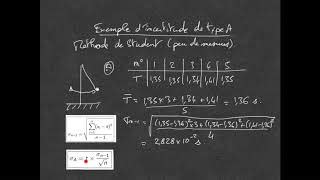 Exemple d'incertitude de type A
Méthode de Student (peu de mesures)
n° 1 2 3 6 5
T 1,35 1,35 1,34 1,41 1,35
T̄ = (1,35×3 + 1,34 + 1,41) / 5 = 1,36 s
σn-1 = √(((1,35-1,36)²×3 + (1,34-1,36)² + (1,41-1,36)²) / 4)
= 2,828×10⁻² s